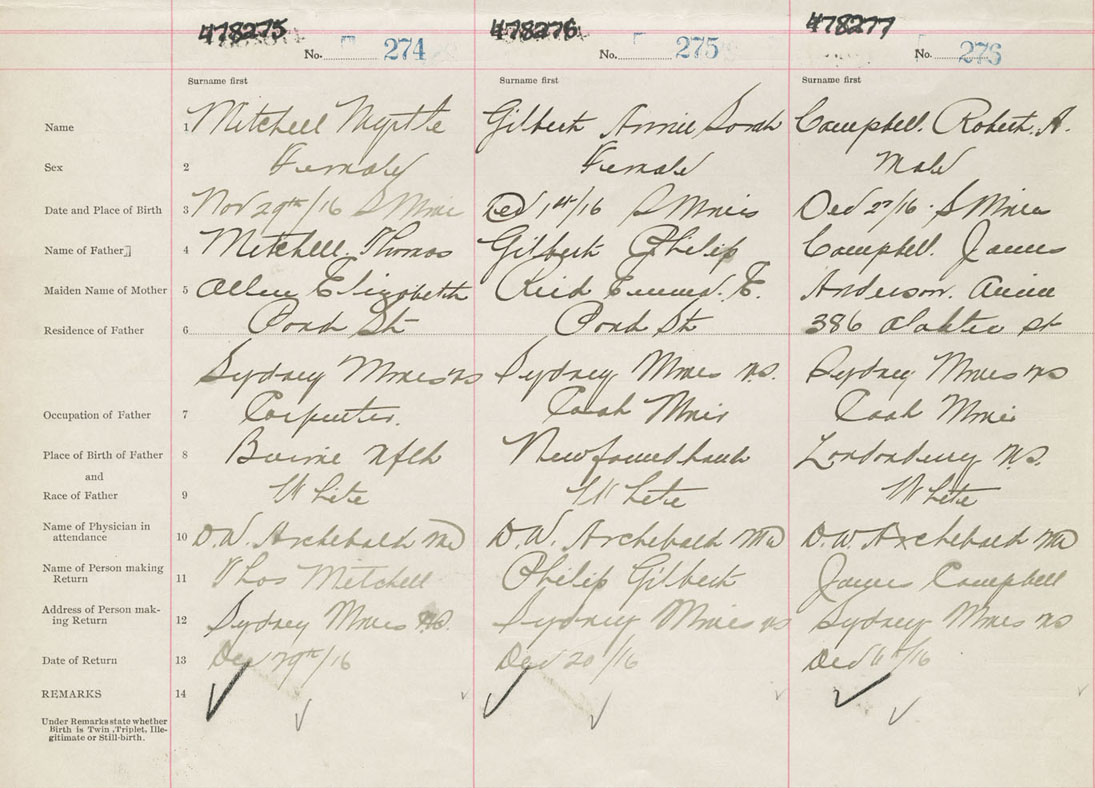 478275 478276 478277
No. 274 No. 275 No. 276
Surname first Surname first Surname first
Name 1 Mitchell Myrtle Gilbert Annie Sarah Campbell. Robert. A.
Sex 2 Female Female Male
Date and Place of Birth 3 Nov 29th/16 S Mines Dec 1st/16 S Mines Dec 2nd/16. S Mines
Name of Father 4 Mitchell. Thomas Gilbert Philip Campbell. James
Maiden Name of Mother 5 Allen Elizabeth Reid Emma. E. Anderson. Annie
Residence of Father 6 Pond St Pond St 386 St
Sydney Mines NS Sydney Mines NS. Sydney Mines NS
Occupation of Father 7 Carpenter. Coal Miner Coal Miner
Place of Birth of Father 8 Nfld Newfoundland Londonderry NS.
and
Race of Father 9 White White White
Name of Physician in
attendance 10 D.W. Archibald MD D.W. Archibald MD D.W. Archibald MD
Name of Person making
Return 11 Thos Mitchell Philip Gilbert James Campbell
Address of Person mak-
ing Return 12 Sydney Mines NS. Sydney Mines NS Sydney Mines NS
Date of Return 13 Dec 29th/16 Dec 20/16 Dec /16
REMARKS 14
Under Remarks state whether
Birth is Twin, Triplet, Ille-
gitimate or Still-birth.